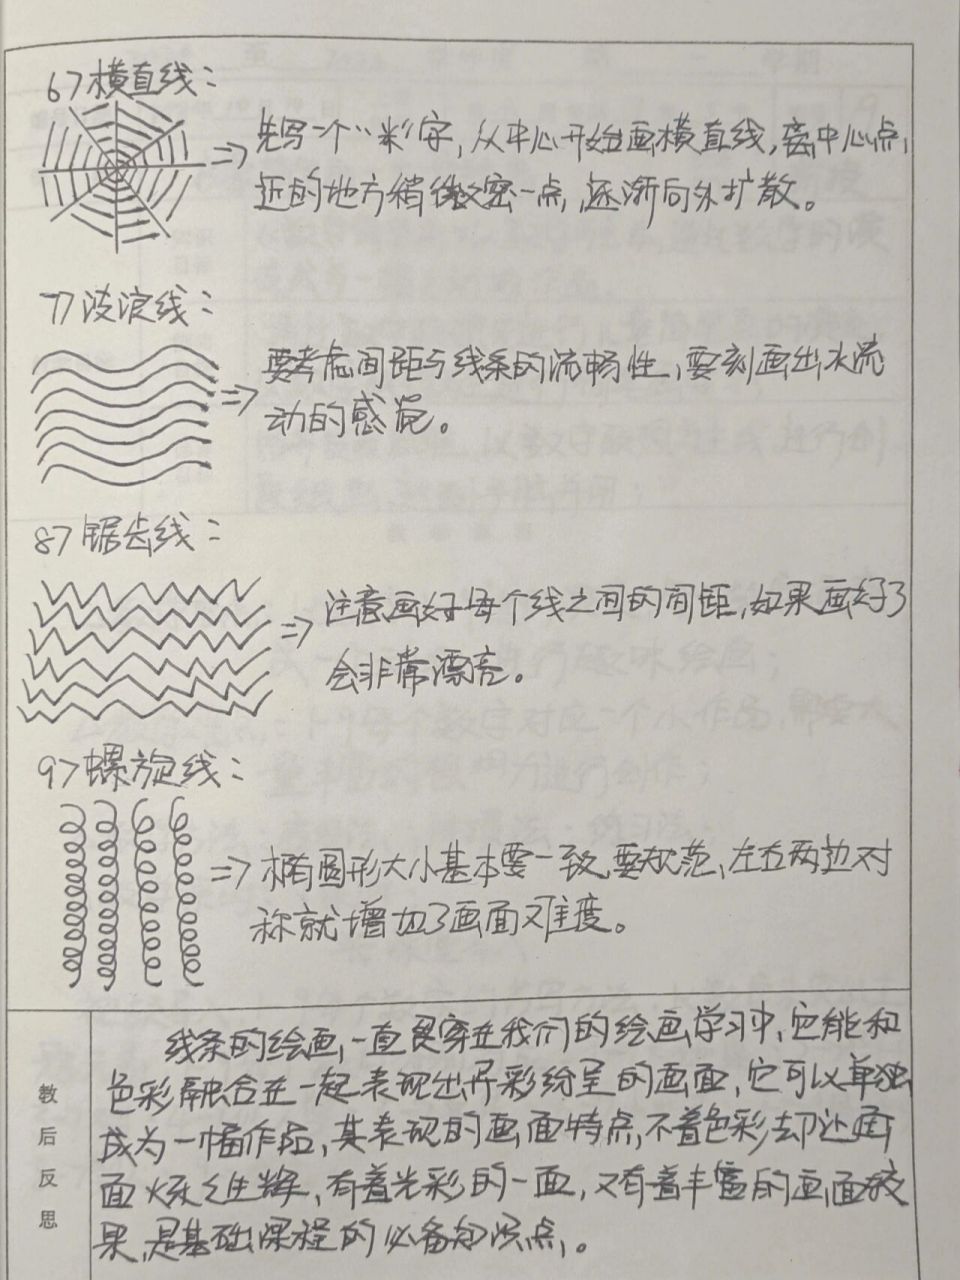 6>横直线：
先写一个“米”字，从中心开始画横直线，离中心点，
近的地方稍微密一点，逐渐向外扩散。
7>波浪线：
要考虑间距与线条的流畅性，要刻画出水流
动的感觉。
8>锯齿线：
注意画好每个线之间的间距，如果画好了
会非常漂亮。
9>螺旋线：
椭圆形大小基本要一致，要规范，左右两边对
称就增加了画面难度。
教后反思
线条的绘画，一直贯穿在我们的绘画学习中，它能和
色彩融合在一起表现出异彩纷呈的画面，它可以单独
成为一幅作品，其表现的画面特点，不着色彩却让画
面 有着光彩的一面，又有着丰富的画面效
果，是基础课程的必备知识点。